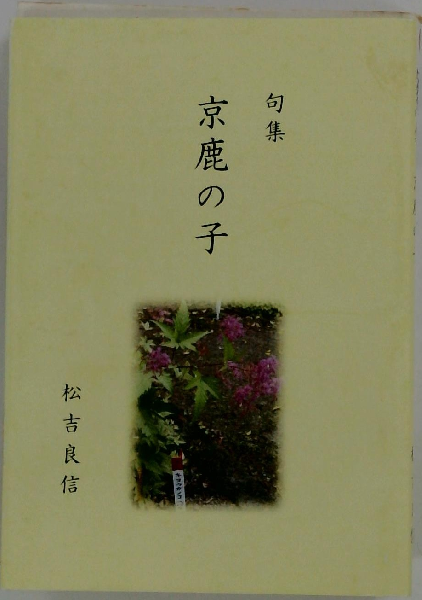 句集
京鹿の子
松吉良信